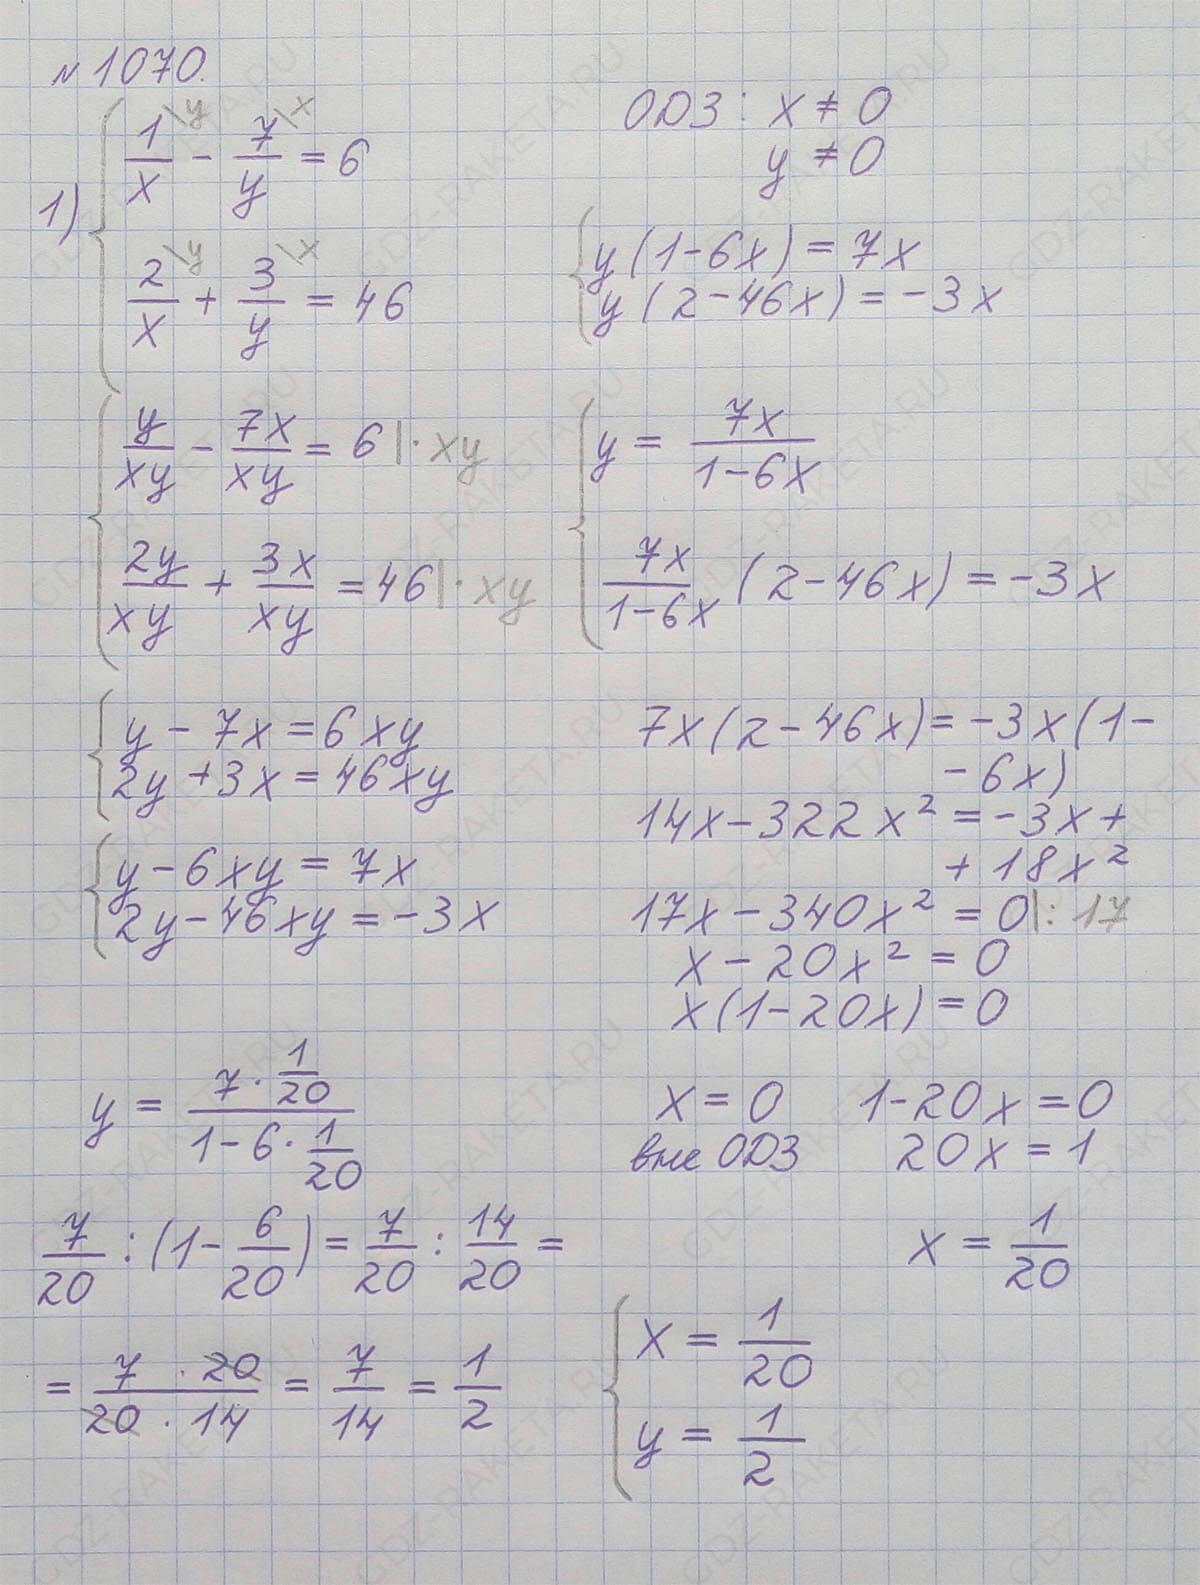 №1070.
1) { 1/x \y - 7/y \x = 6
2/x \y + 3/y \x = 46
{ y/xy - 7x/xy = 6 |·xy
2y/xy + 3x/xy = 46 |·xy
{ y - 7x = 6xy
2y + 3x = 46xy
{ y - 6xy = 7x
2y - 46xy = -3x
ОДЗ: x ≠ 0
y ≠ 0
{ y(1-6x) = 7x
y(2-46x) = -3x
{ y = 7x/1-6x
7x/1-6x (2-46x) = -3x
7x(2-46x) = -3x(1-
-6x)
14x - 322x² = -3x +
+ 18x²
17x - 340x² = 0 |: 17
x - 20x² = 0
x(1-20x) = 0
x = 0 1-20x = 0
вне ОДЗ 20x = 1
x = 1/20
y = 7·1/20 / 1-6·1/20
7/20 : (1- 6/20) = 7/20 : 14/20 =
= 7·20/20·14 = 7/14 = 1/2
{ x = 1/20
y = 1/2
GDZ-RAKETA.RU